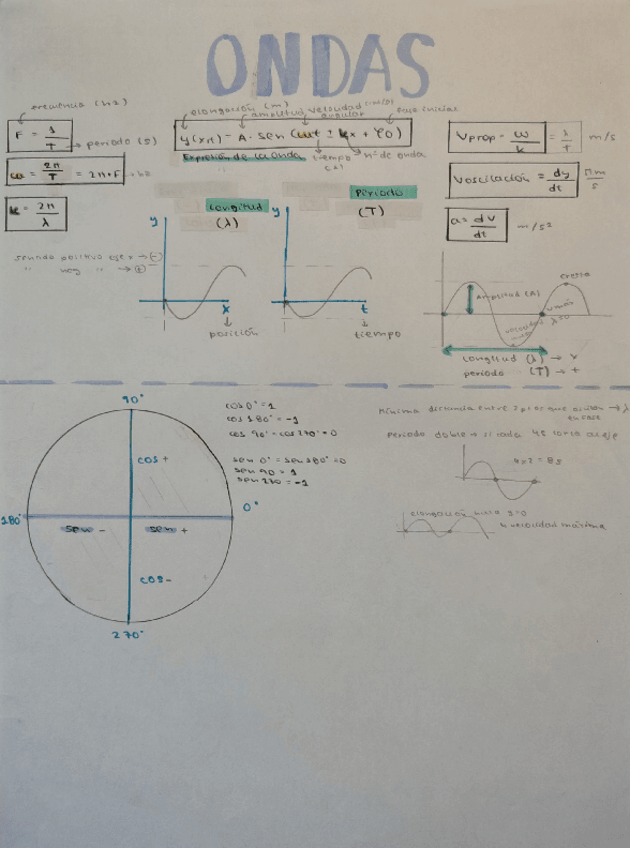 ONDAS
frecuencia (Hz)
F = 1/T → periodo (s)
ω = 2π/T = 2π·F
k = 2π/λ
elongación (m)
amplitud velocidad angular
fase inicial
y(x,t) = A · sen (ωt ± kx + φ0)
Expresión de la onda
tiempo (s)
nº de onda
Vprop = ω/k = λ/T m/s
Voscilación = dy/dt m/s
a = dv/dt m/s²
sentido positivo eje x → (-)
" neg " → (+)
Longitud (λ)
y
x
posición
Periodo (T)
y
t
tiempo
Amplitud (A)
cresta
Longitud (λ) → x
periodo (T) → t
90°
0°
180°
270°
cos +
sen -
sen +
cos -
cos 0° = 1
cos 180° = -1
cos 90° = cos 270° = 0
sen 0° = sen 180° = 0
sen 90 = 1
sen 270 = -1
Mínima distancia entre 2 ptos que oscilan → λ
en fase
Periodo doble → si cada 4s
4·2 = 8s
elongación
velocidad máxima